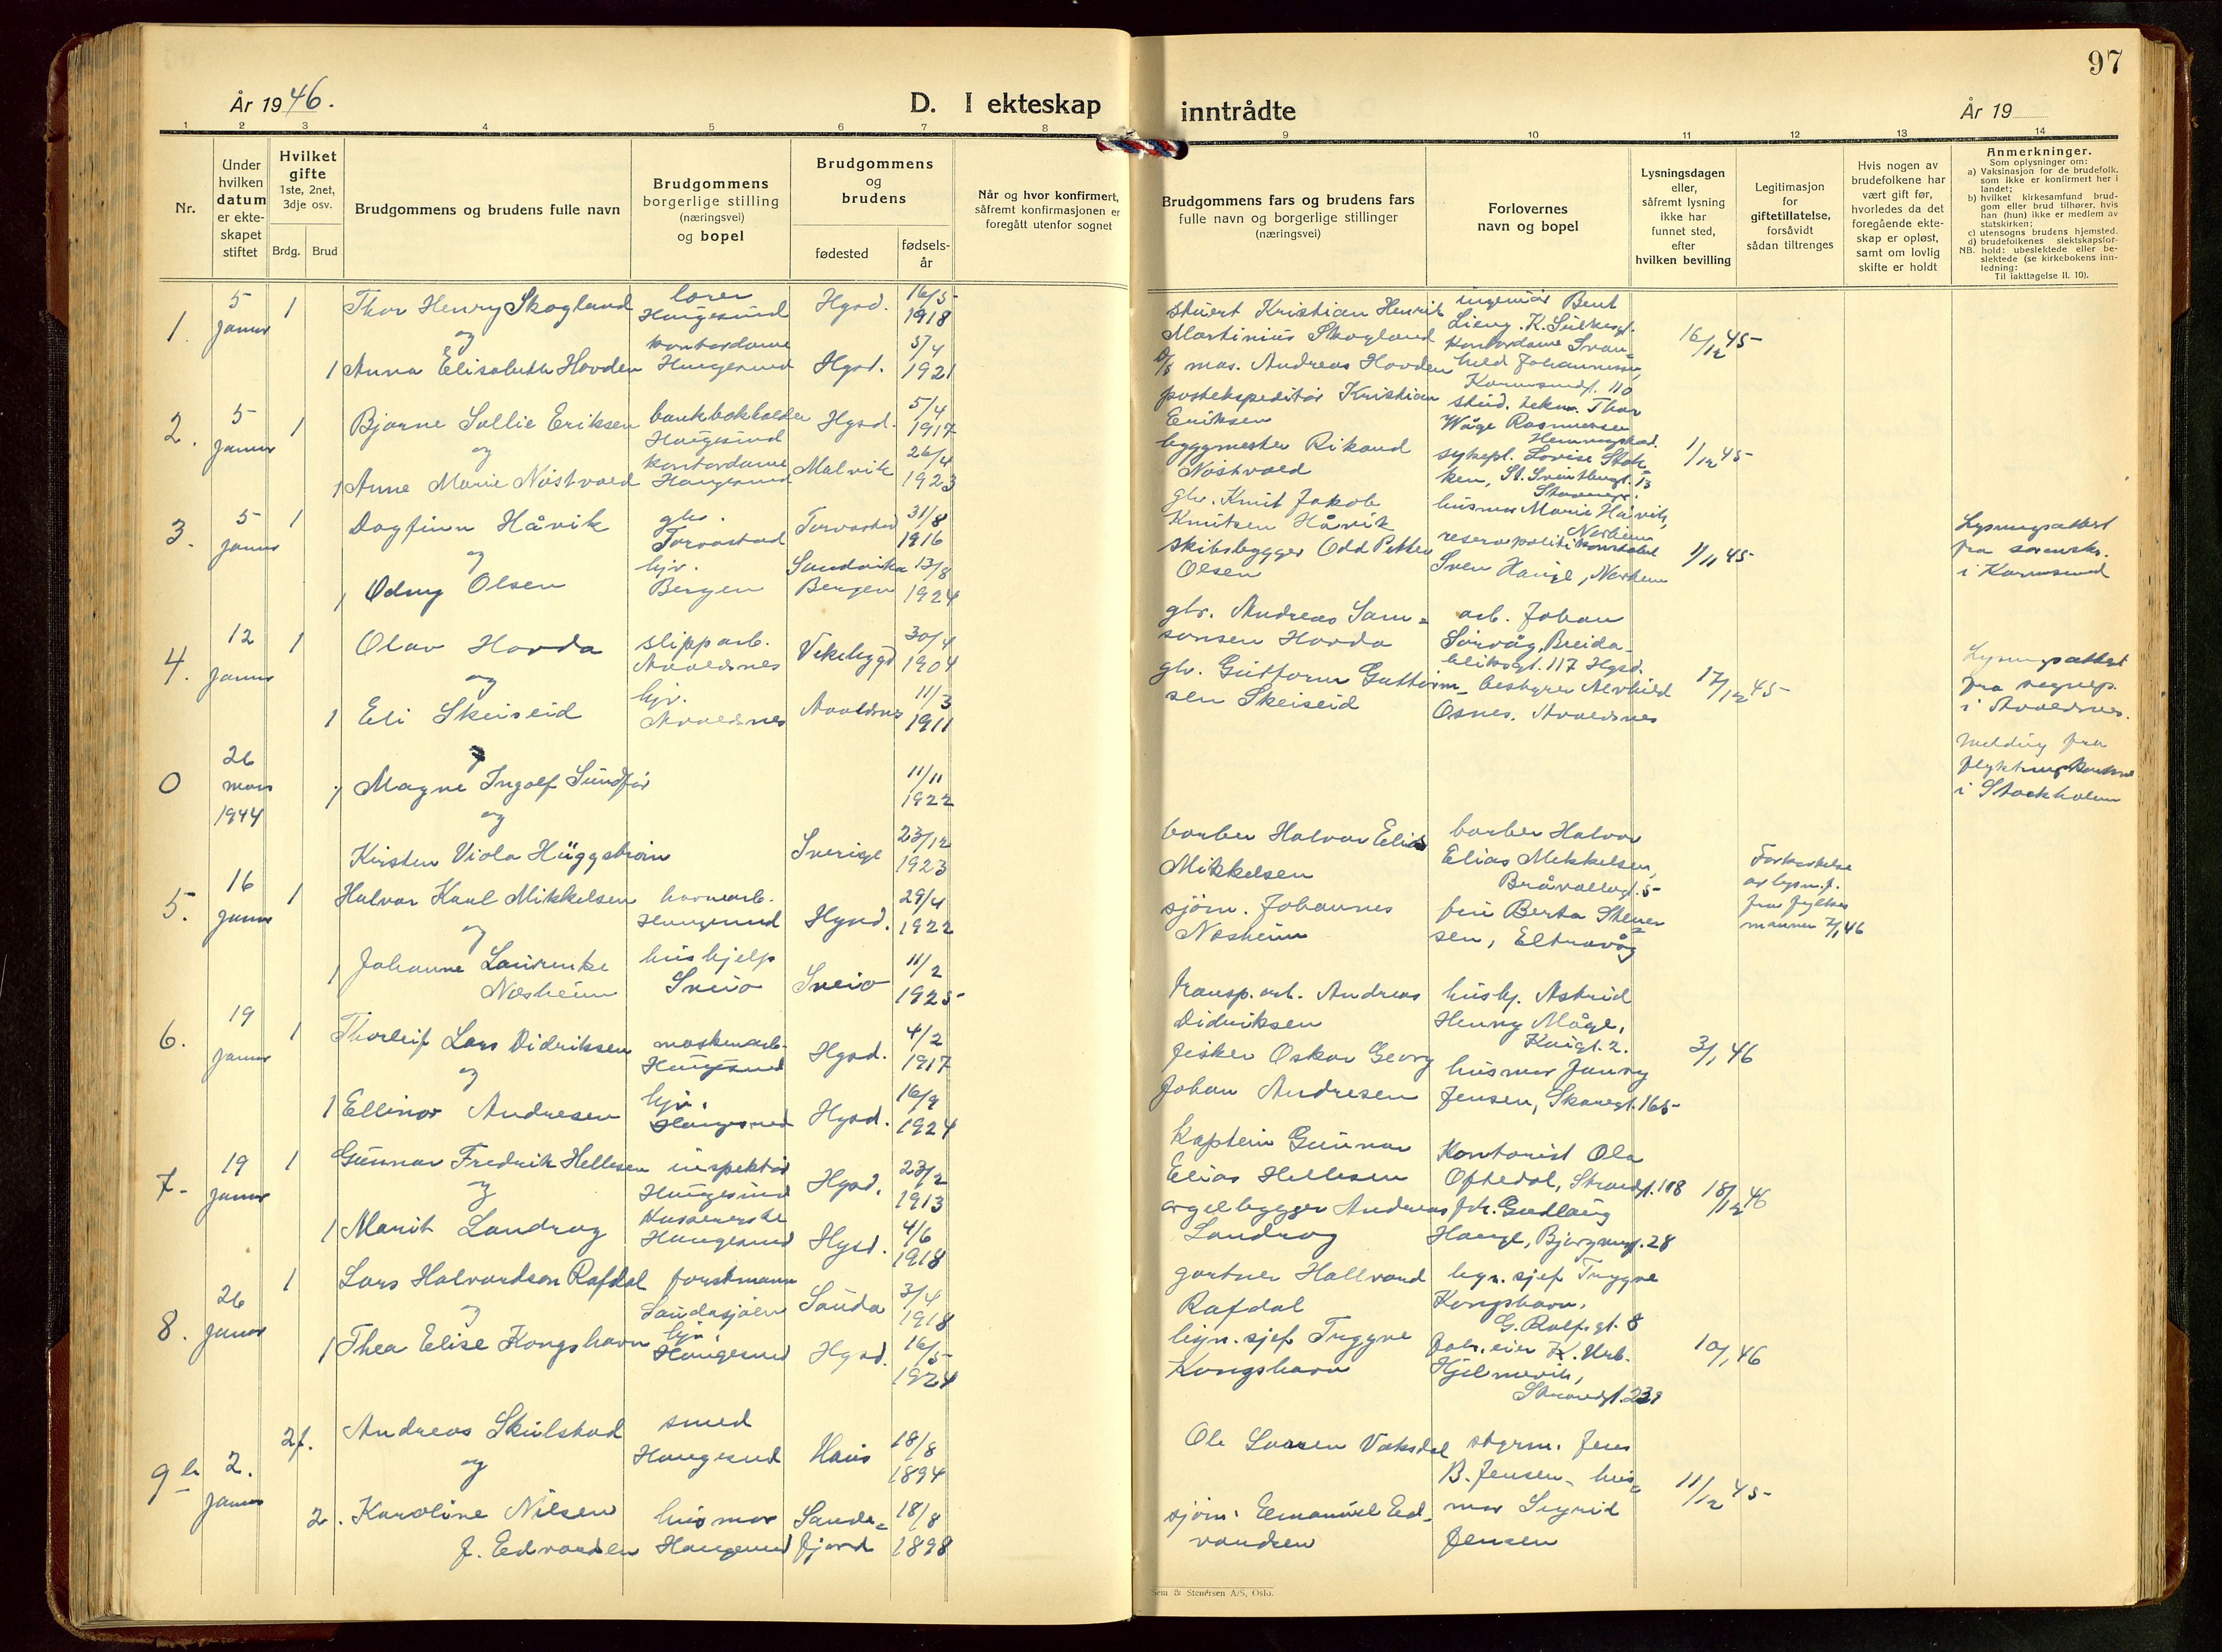 97
År 1946.
D. I ekteskap inntrådte
År 19
1 2 3 4 5 6 7 8 9 10 11 12 13 14
Nr.
Under
hvilken
datum
er ekte-
skapet
stiftet
Hvilket
gifte
1ste, 2net,
3dje osv.
Brdg. Brud
Brudgommens og brudens fulle navn
Brudgommens
borgerlige stilling
(næringsvei)
og bopel
Brudgommens
og
brudens
fødested
fødsels-
år
Når og hvor konfirmert,
såfremt konfirmasjonen er
foregått utenfor sognet
Brudgommens fars og brudens fars
fulle navn og borgerlige stillinger
(næringsvei)
Forlovernes
navn og bopel
Lysningsdagen
eller,
såfremt lysning
ikke har
funnet sted,
efter
hvilken bevilling
Legitimasjon
for
giftetillatelse,
forsåvidt
sådan tiltrenges
Hvis nogen av
brudefolkene har
vært gift før,
hvorledes da det
foregående ekte-
skap er opløst,
samt om lovlig
skifte er holdt
Anmerkninger.
Som oplysninger om:
a) Vaksinasjon for de brudefolk,
som ikke er konfirmert her i
landet;
b) hvilket kirkesamfund brud-
gom eller brud tilhører, hvis
han (hun) ikke er medlem av
statskirken;
c) utensogns brudens hjemsted.
d) brudefolkenes slektskapsfor-
NB. hold: ubeslektede eller be-
slektede (se kirkebokens inn-
ledning:
Til iakttagelse II. 10).
1.
5
januar
1
Thor Henry Skogland
og
1 Anna Elisabeth Hovden
lærer
Haugesund
kontordame
Haugesund
Hgsd.
16/5
1918
Hgsd.
5/4
1921
stuert Kristian Henrik
Martinius Skogland
D/S mas. Andreas Hovden
ingeniør Bent
Lieng. K.
kontordame Svan-
hild Johannessen,
Karmsundgt. 110
16/12 45
2.
5
januar
1
Bjarne Sollie Eriksen
og
1 Anne Marie Nøstvold
bankbokholder
Haugesund
kontordame
Haugesund
Hgsd.
5/4
1917
Malvik
26/4
1923
postekspeditør Kristian
Eriksen
byggmester Rikard
Nøstvold
stud. tekn. Thor
Våge Rasmussen
sykepl. Lovise Stok-
ken,
1/12 45
3.
5
januar
1
Dagfinn Håvik
og
1 Odny Olsen
gbr.
Torvastad
hjv.
Bergen
Torvastad
31/8
1916
Sandvika
Bergen
13/8
1924
gbr. Knut Jakob
Knutsen Håvik
skibsbygger Odd Petter
Olsen
husmor Marie Håvik,
Norheim
reservepolitikonstabel
Sven Hauge, Norheim
1/11 45
Lysningsattest
fra sorensk.
i Karmsund
4.
12
januar
1
Olav Hovda
og
1 Eli Skeiseid
slipparb.
Avaldsnes
hjv.
Avaldsnes
Vikebygd
30/4
1904
Avaldsnes
11/3
1911
gbr. Andreas Sam-
sonsen Hovda
gbr. Guttorm Guttorm-
sen Skeiseid
arb. Johan
Sørvåg, Breida-
bliksgt. 117 Hgsd.
bestyrer Alvhild
Osnes. Avaldsnes
17/12 45
Lysningsattest
fra sognep.
i Avaldsnes.
0
26
mars
1944
1 Magne Ingolf Sundfør
og
Kirsten Viola Häggström
11/11
1922
Sverige
23/12
1923
melding fra
flyktningskontoret
i Stockholm
5.
16
januar
1
Halvor Karl Mikkelsen
og
1 Johanne Laurenke
Næsheim
havnearb.
Haugesund
hushjelp
Sveio
Hgsd.
29/4
1922
Sveio
11/2
1925
barber Halvor Elias
Mikkelsen
sjøm. Johannes
Næsheim
barber Halvor
Elias Mikkelsen,
Bråvallagt. 5
fru Berta Stener-
sen, Eltravåg
av lysn.
fra fylkes
mannen 7/1 46
6.
19
januar
1
Thorleif Lars Didriksen
og
1 Ellinor Andresen
maskinarb.
Haugesund
hjv.
Haugesund
Hgsd.
4/2
1917
Hgsd.
16/9
1924
transp. arb. Andreas
Didriksen
fisker Oskar Georg
Johan Andresen
hushj. Astrid
Henny Måge,
Kaigt. 2.
husmor Janny
Jensen, Skaregt. 165
3/1 46
7.
19
januar
1
Gunnar Fredrik Hellesen
og
1 Marit Landrog
inspektør
Haugesund
kassererske
Haugesund
Hgsd.
23/2
1913
Hgsd.
4/6
1918
Kaptein Gunnar
Elias Hellesen
orgelbygger Andreas
Landrog
Kontorist Ola
Oftedal, Strandgt. 188
frk. Gudlaug
Hauge, Bjørgvingt. 28
18/12 46
8.
26
januar
1
Lars Halvardson Rafdal
og
1 Thea Elise Kongshavn
forstmann
Saudasjøen
hjv.
Haugesund
Sauda
3/4
1918
Hgsd.
16/5
1924
gartner Hallvard
Rafdal
lign. sjef Trygve
Kongshavn
lign. sjef Trygve
Kongshavn,
G. Rolfsgt. 8
fabr. eier K. Urb.
Hjelmervik,
Strandgt. 239
10/1 46
9 b
2.
januar
2 f.
Andreas Skulstad
og
2. Karoline Nilsen
f. Edvardsen
smed
Haugesund
husmor
Haugesund
Haus
18/8
1894
Sande-
fjord
18/8
1898
Ole Larsen Vaksdal
sjøm. Emanuel Ed-
vardsen
styrm. Jens
B. Jensen - hus-
mor Sigrid
Jensen
11/12 45
Sem & Stenersen A/S, Oslo.